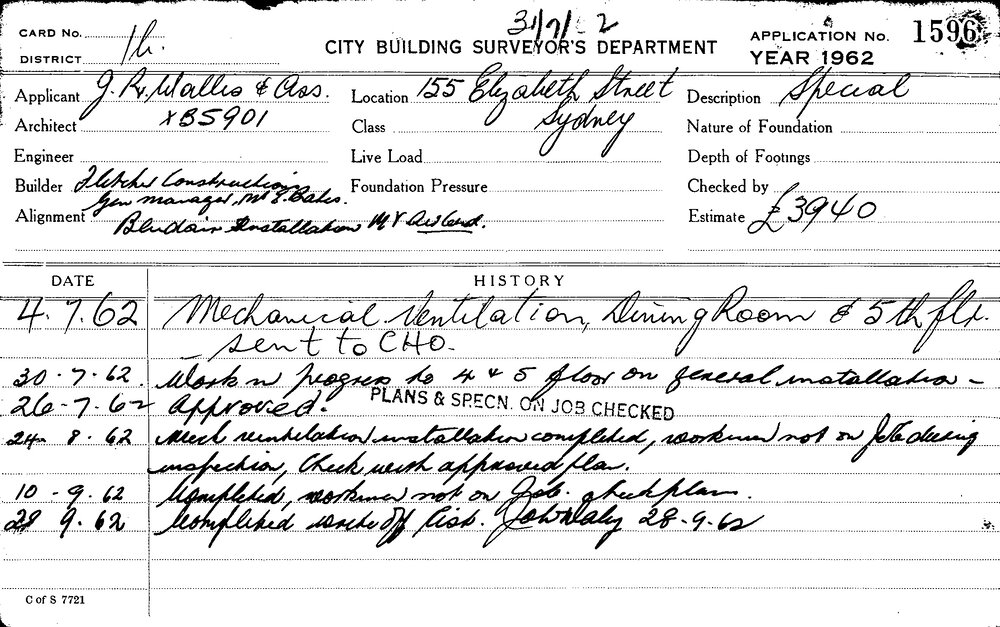 CARD No.
DISTRICT 1h.
31/7/62
CITY BUILDING SURVEYOR'S DEPARTMENT
APPLICATION No. 1596
YEAR 1962
Applicant J. R. Wallis & Ass.
Location 155 Elizabeth Street
Sydney
Description Special
Architect XB5901
Class
Nature of Foundation
Engineer
Live Load
Depth of Footings
Builder Fletcher Construction
Gen manager, Mr E. Bates.
Foundation Pressure
Checked by
Alignment Installation Mr
Estimate £3940
DATE HISTORY
4.7.62 Mechanical Ventilation, Dining Room & 5th flr.
– sent to CHO.
30.7.62. Work in progress to 4 & 5 floor on general installation –
26-7-62 Approved. PLANS & SPECN. ON JOB CHECKED
24. 8. 62 Mech ventilation installation completed, workmen not on Job during
inspection, Check with approved plan.
10 - 9. 62 Completed, workmen not on Job. check plan.
28 9. 62 Completed write off list. 28-9-62
C of S 7721